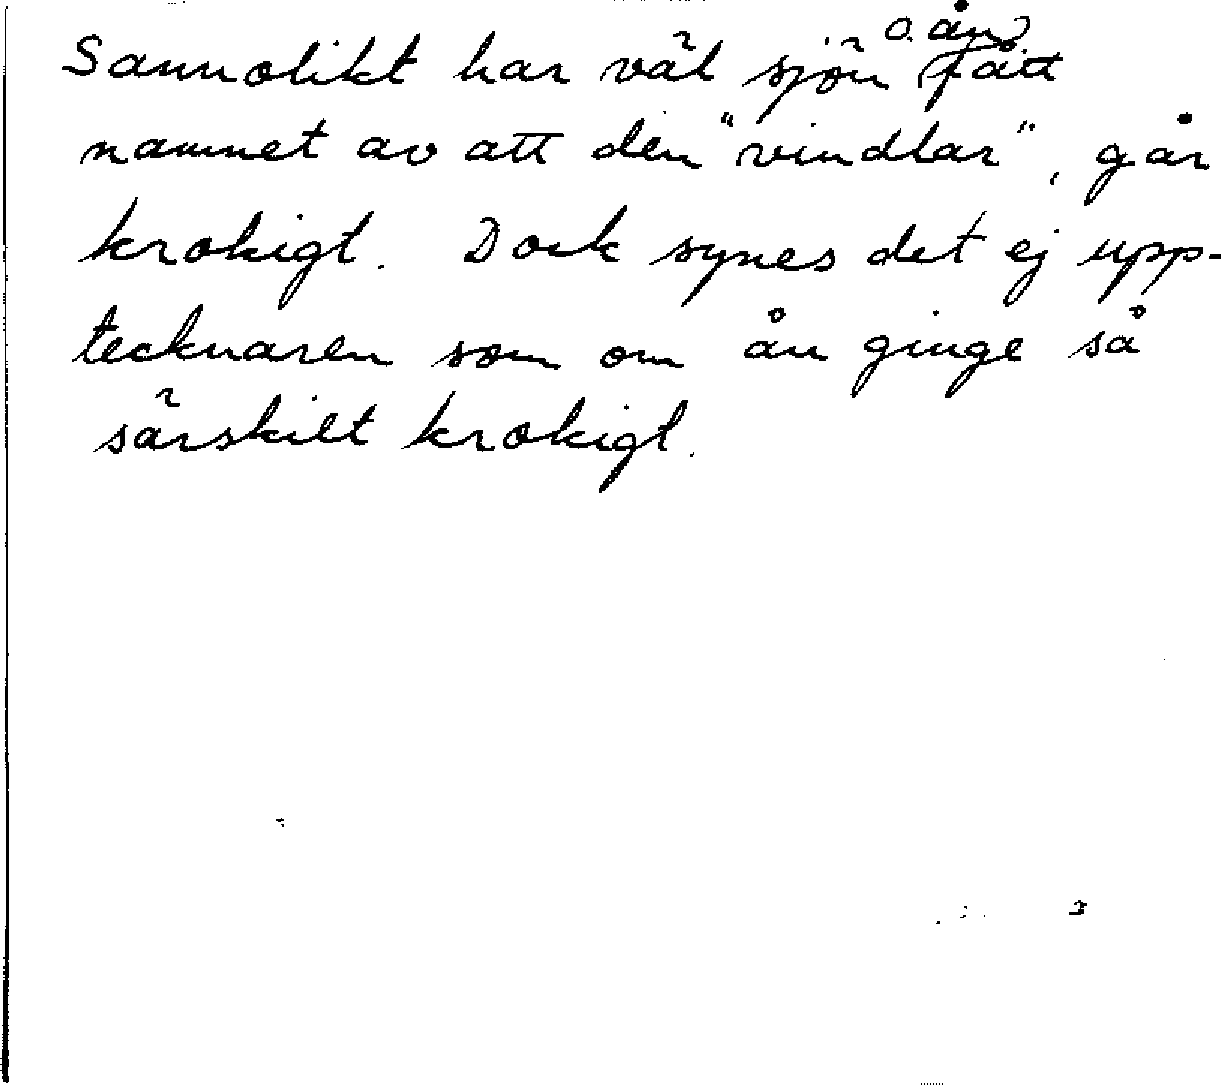 Sannolikt har väl sjön o. ån fått
namnet av att den "vindlar", går
krokigt. Dock synes det ej upp-
tecknaren som om ån ginge så
särskilt krokigt.